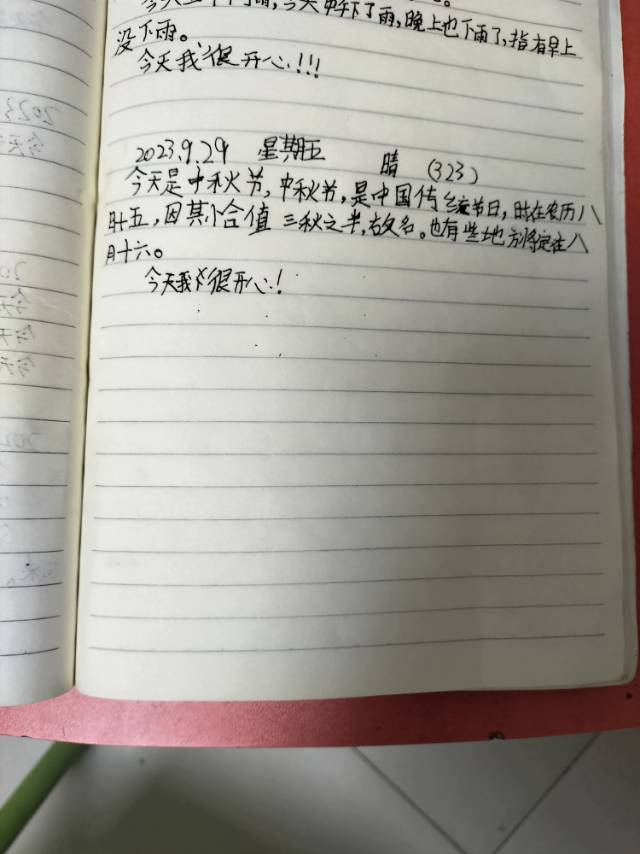 今天中午下了雨,晚上也下雨了,指有早上
没下雨。
今天我很开心!!!
2023.9.29 星期五 晴 (323)
今天是中秋节,中秋节,是中国传统节日,时在农历八
月十五,因其恰值三秋之半,故名。也有些地方将定在八
月十六。
今天我很开心!